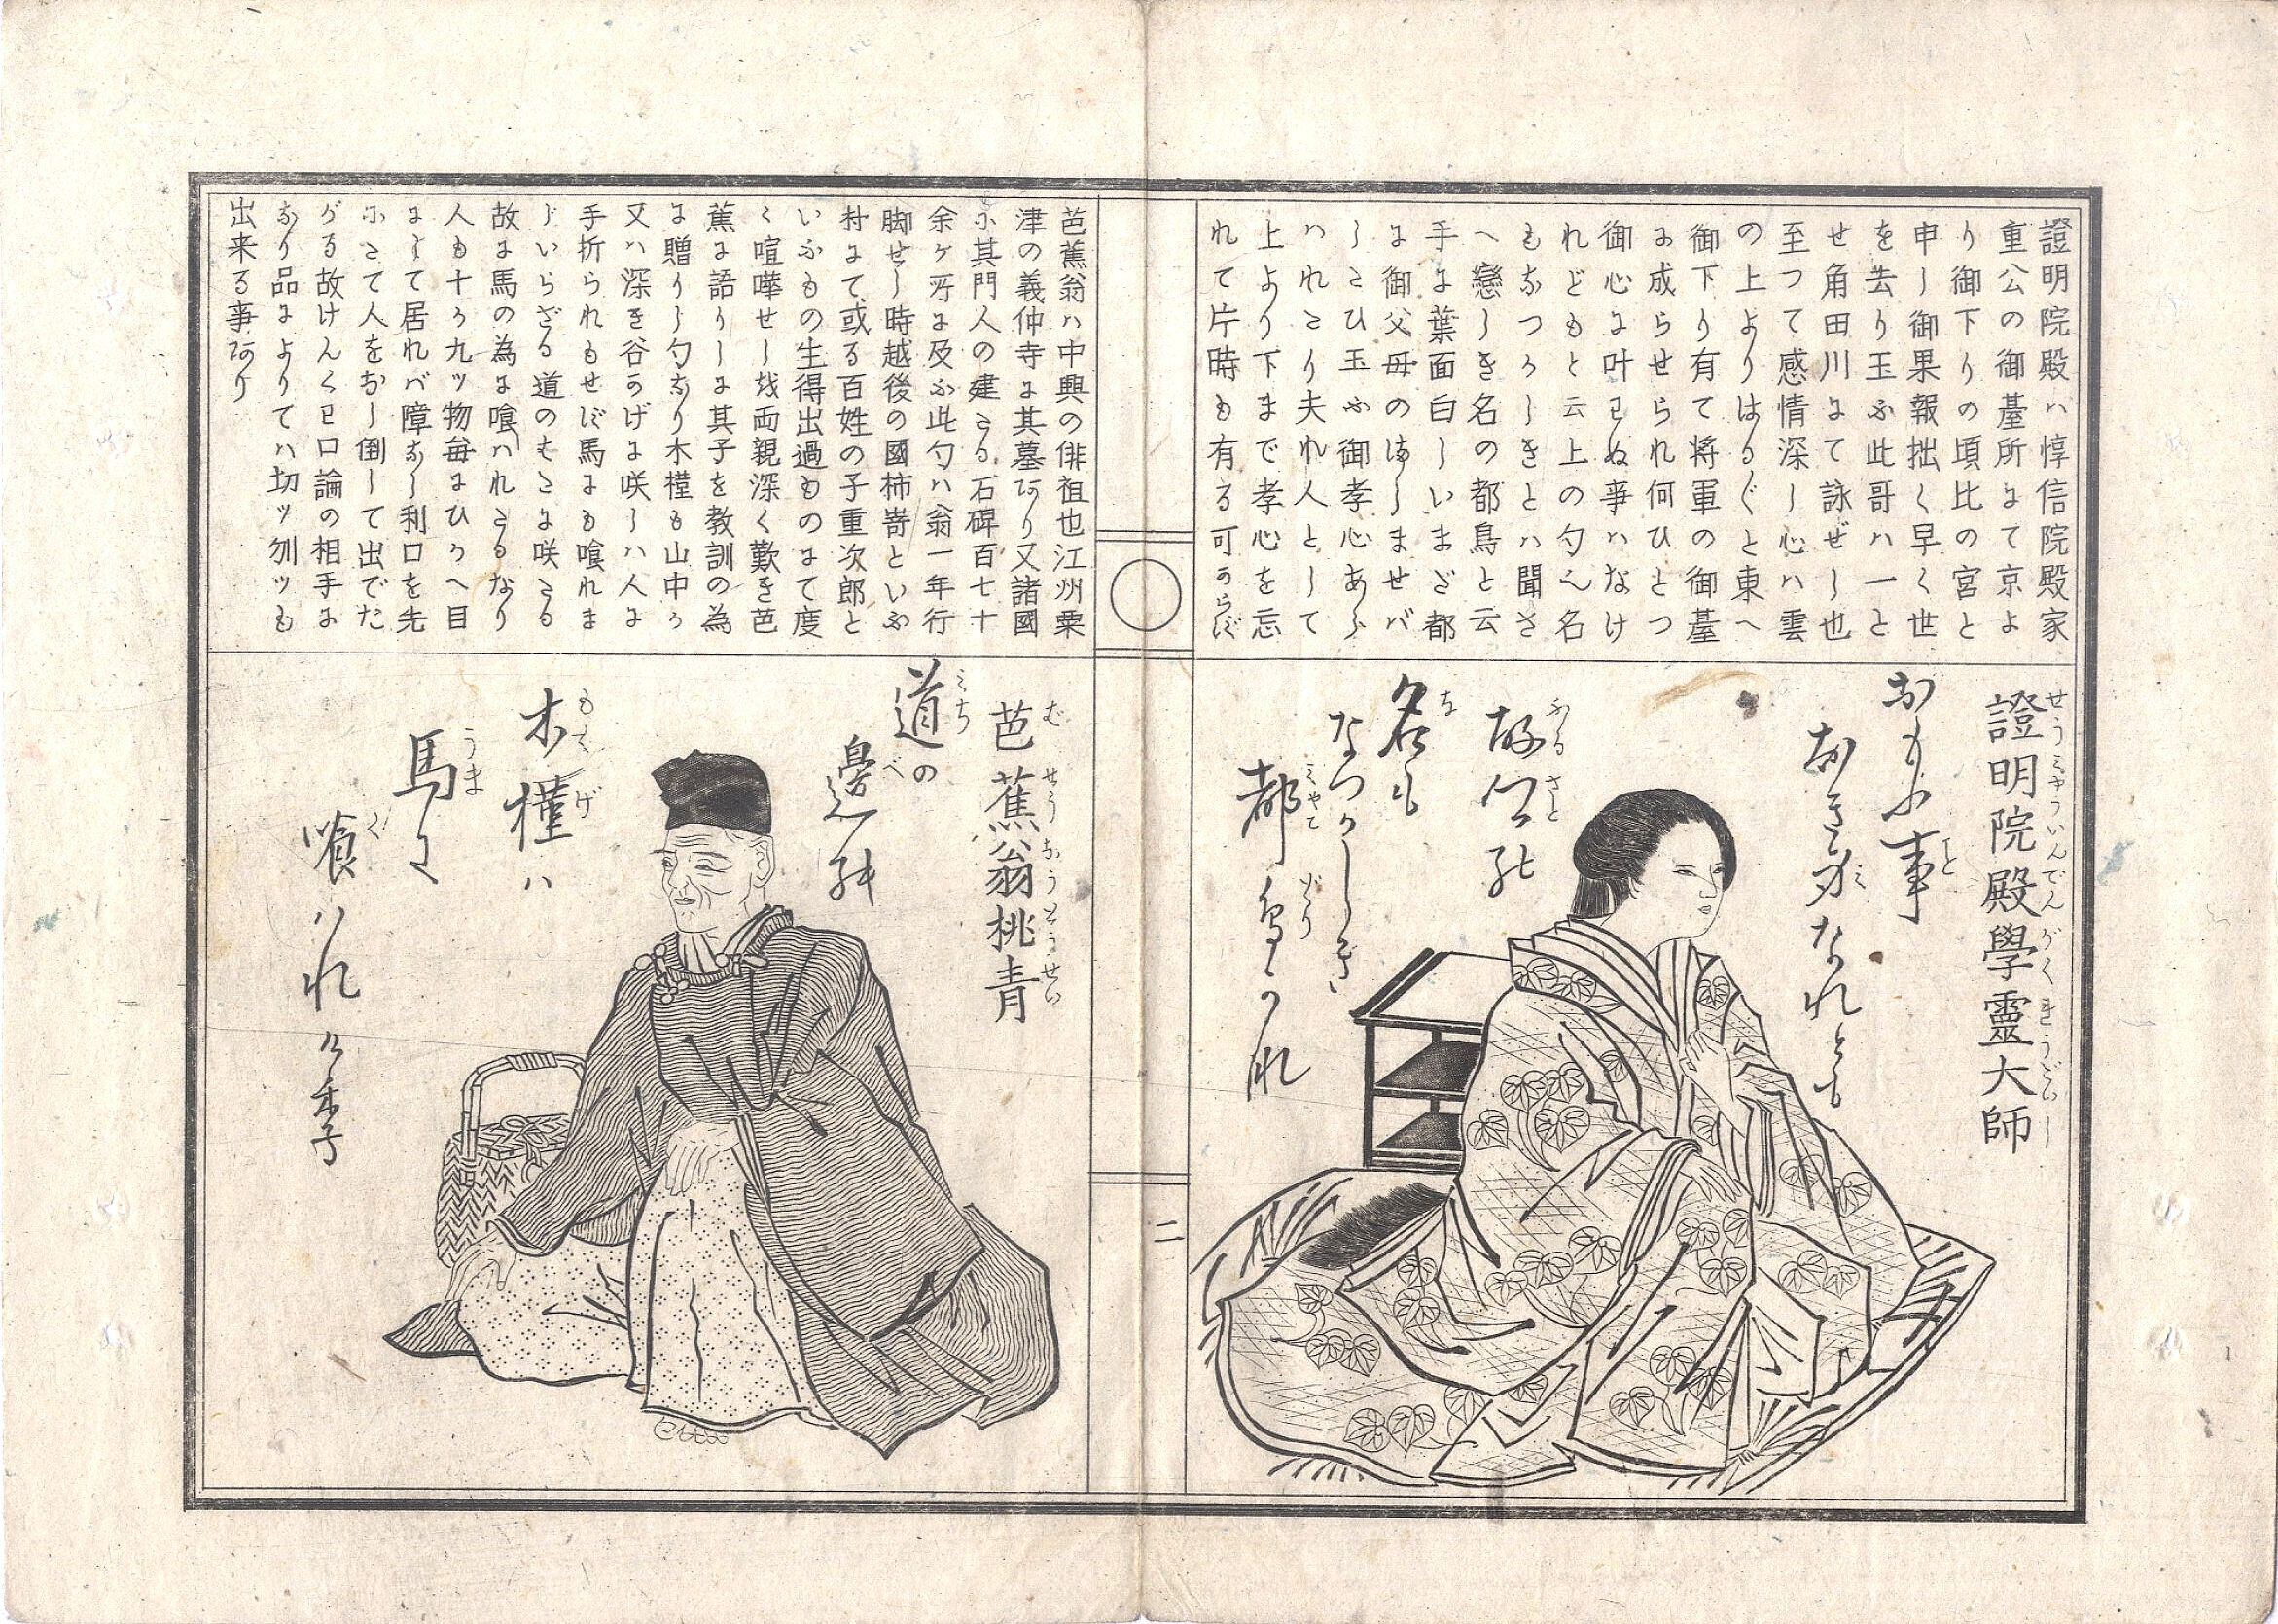 證明院殿ハ惇信院殿家
重公の御臺所にて京よ
り御下りの頃比の宮と
申し御果報拙く早く世
を去り玉ふ此哥ハ一と
せ角田川にて詠ぜし也
至つて感情深し心ハ雲
の上よりはる〴〵と東へ
御下り有て将軍の御臺
に成らせられ何ひとつ
御心に叶わぬ事ハなけ
れどもと云上の句へ名
もなつかしきとハ聞さ
へ戀しき名の都鳥と云
手に葉面白しいまざ都
に御父母のましませバ
したひ玉ふ御孝心あら
ハれたり夫れ人として
上より下まで孝心を忘
れて片時も有る可からず
證明院殿學靈大師
せうミやういんでんがくれうだいし
おもふ事
こと
なき身なれとも
ミ
故郷能
ふるさと
名も
な
なつかしき
都鳥かな
みやこどり
二
芭蕉翁ハ中興の俳祖也江州粟
津の義仲寺に其墓あり又諸國
に其門人の建たる石碑百七十
余ケ所に及ふ此句ハ翁一年行
脚せし時越後の國柿嵜といふ
村にて或る百姓の子重次郎と
いふもの生得出過ものにて度
く喧嘩せし故両親深く歎き芭
蕉に語りしに其子を教訓の為
に贈りし句なり木槿も山中か
又ハ深き谷かげに咲しハ人に
手折られもせず馬にも喰れま
じいらざる道のもとに咲たる
故に馬の為に喰ハれたるなり
人も十か九ツ物毎にひかへ目
にして居れバ障なし利口を先
にたて人をおし倒して出でた
がる故けんくわ口論の相手に
なり品によりてハ切ツ刎ツも
出来る事あり
芭蕉翁桃青
むせうおうとうせい
道の
ミち
邊能
べ
木槿ハ
もくげ
馬に
うま
喰ハれけ季子
く